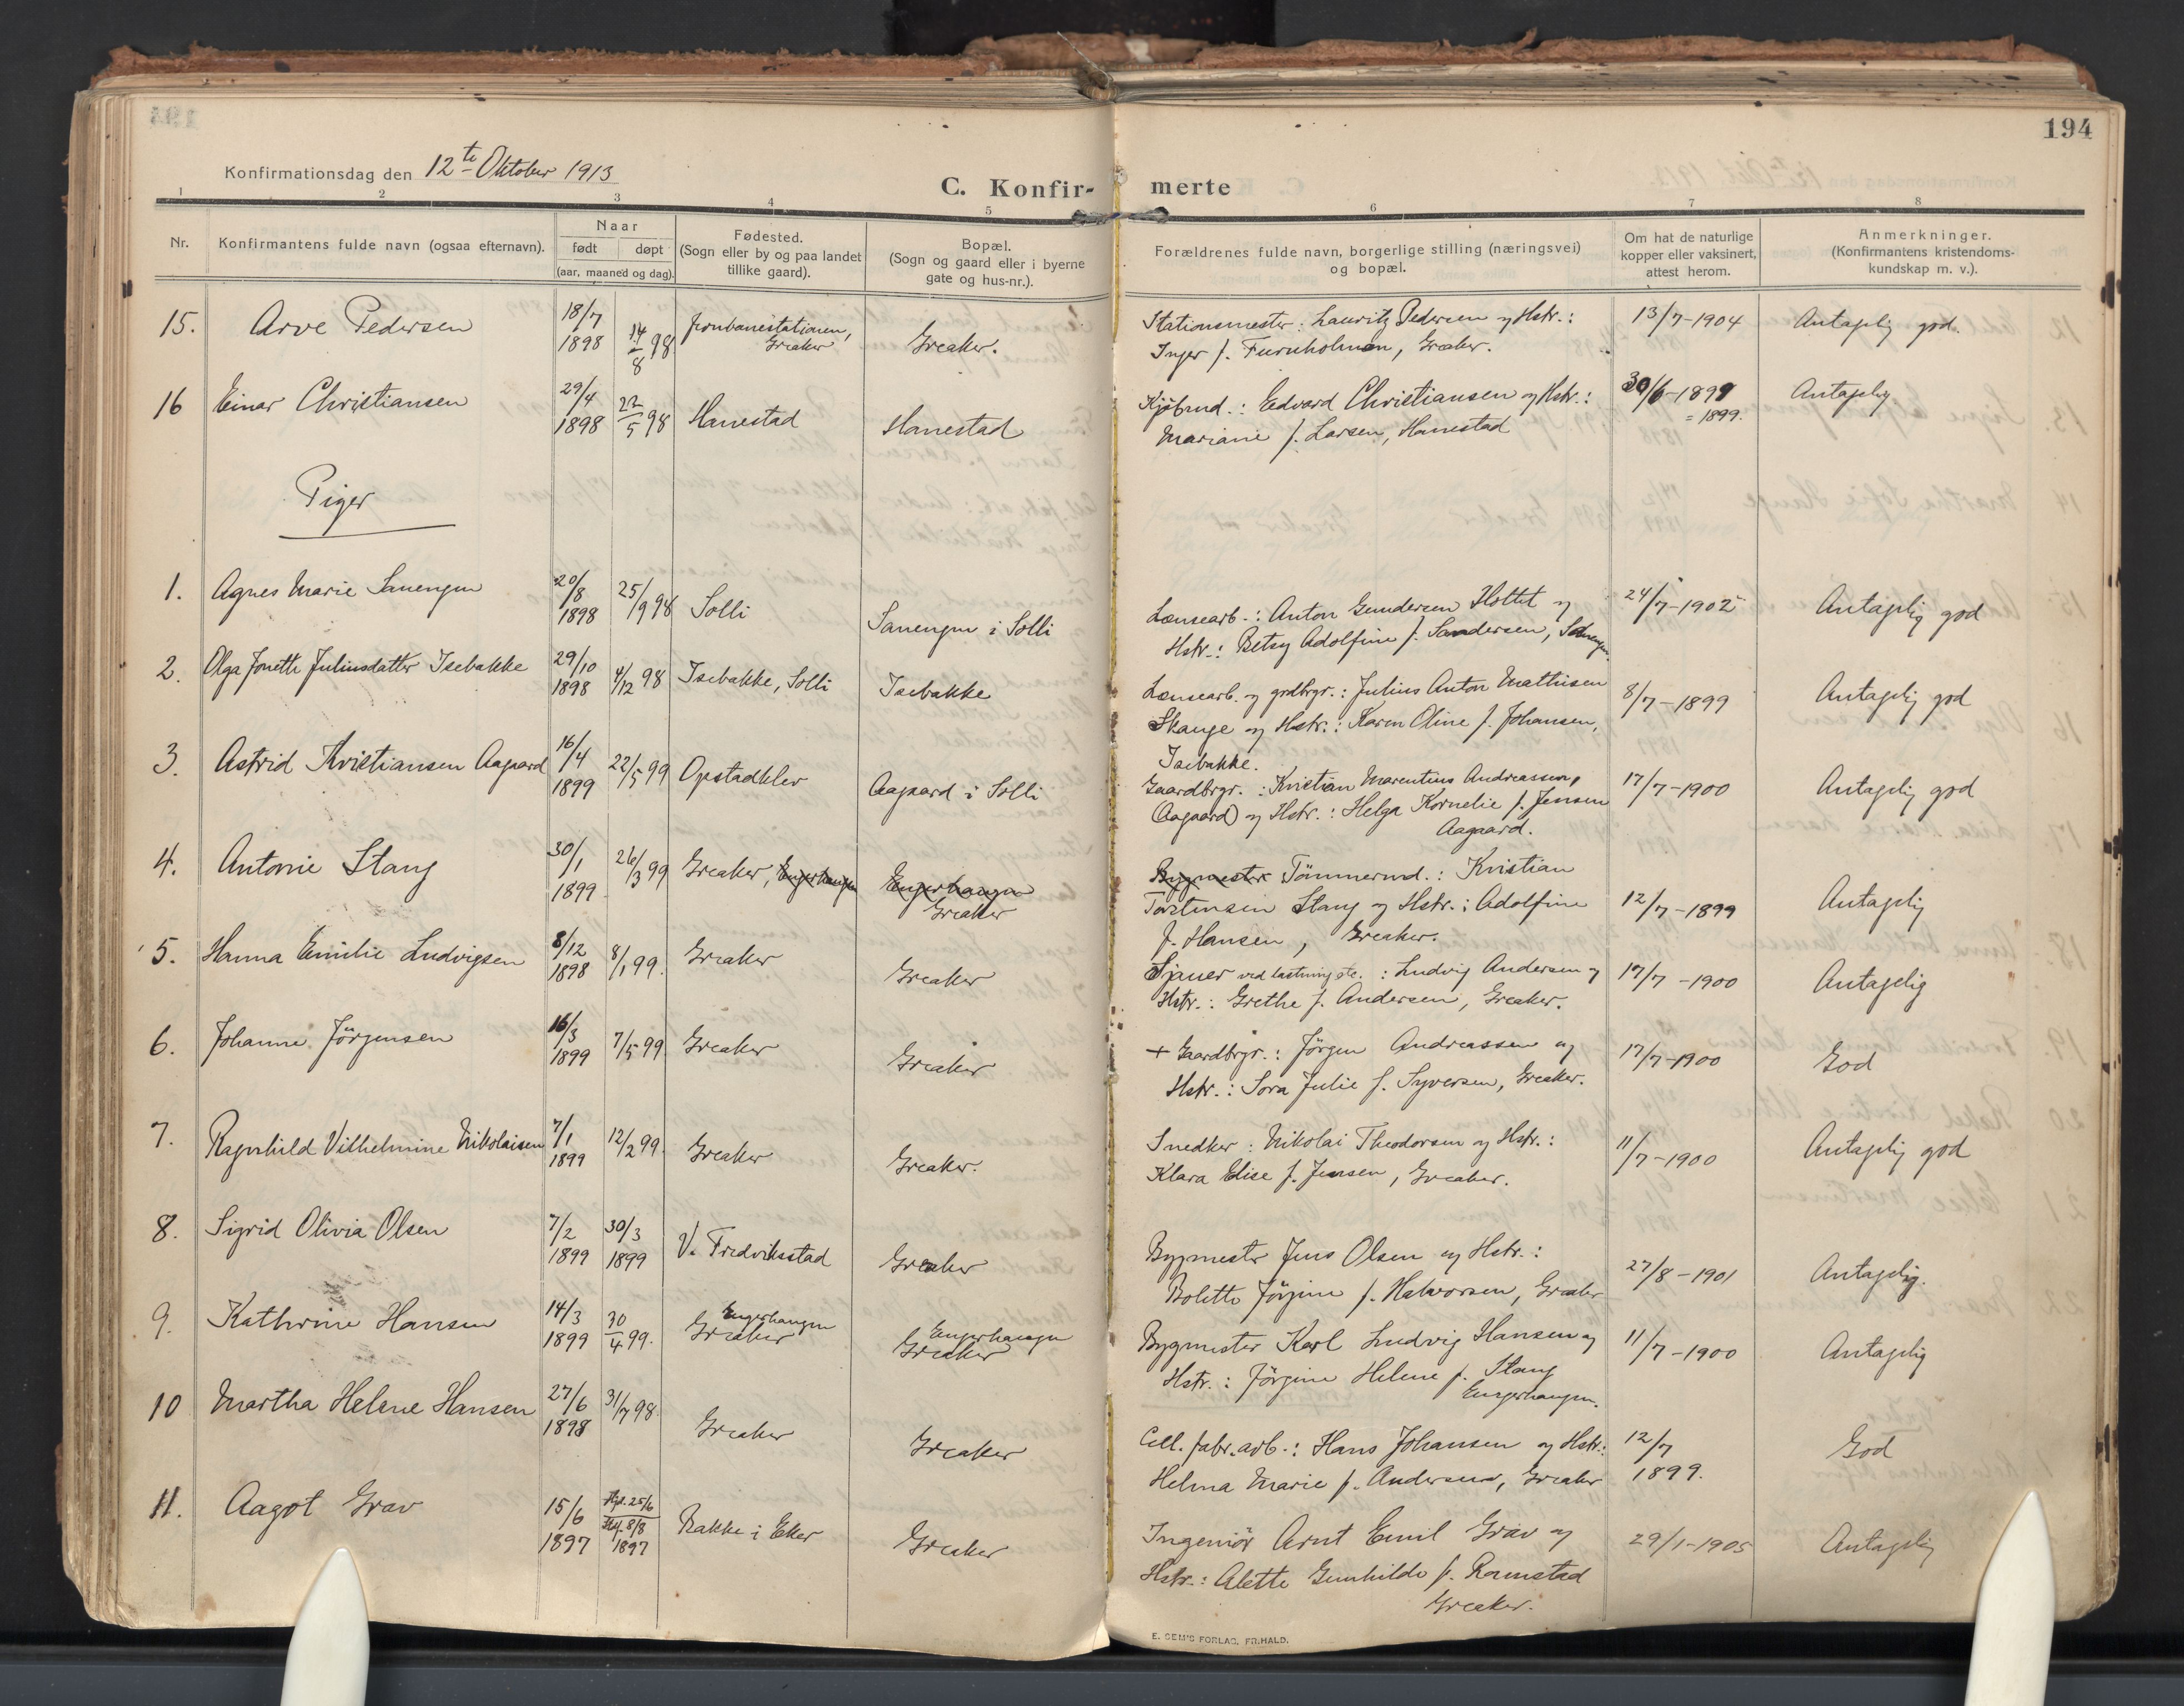 194
Konfirmationsdag den 12te Oktober 1913
C. Konfir-merte
1 2 3 4 5 6 7 8
Nr.
Konfirmantens fulde navn (ogsaa efternavn).
Naar
født døpt
(aar, maaned og dag).
Fødested.
(Sogn eller by og paa landet
tillike gaard).
Bopæl.
(Sogn og gaard eller i byerne
gate og hus-nr.).
Forældrenes fulde navn, borgerlige stilling (næringsvei)
og bopæl.
Om hat de naturlige
kopper eller vaksinert,
attest herom.
Anmerkninger.
(Konfirmantens kristendoms-
kundskap m. v.).
15. Arve Pedersen 18/7 1898 14/8 98 Jernbanestationen, Greaker Greaker.
Stationsmester: Lauritz Pedersen og Hstr.:
Inger f. Furuholmen, Greaker.
13/7-1904 Antagelig god.
16 Einar Christiansen 29/4 1898 22/5 98 Hanestad Hanestad
Kjøbmd.: Edvard Christiansen og Hstr.:
Mariane f. Larsen, Hanestad
30/6-1899
= 1899.
Antagelig
Piger
1. Agnes Marie Sanengen 20/8 1898 25/9 98 Solli Sanengen i Solli
Lænsearb.: Anton Gundersen Hottet og
Hstr.: Betsy Adolfine f. Sandersen, Sanengen.
24/7-1902 Antagelig god
2. Olga Jonette Juliusdatter Isebakke 29/10 1898 4/12 98 Isebakke, Solli Isebakke
Lænsearb. og grdbrgr.: Julius Anton Mathisen
Skauge og Hstr.: Karen Oline f. Johansen,
Isebakke.
8/7-1899 Antagelig god
3. Astrid Kristiansen Aagaard 16/4 1899 22/5 99 Opstadklev Aagaard i Solli
Gaardbrgr.: Kristian Marentius Andreassen,
(Aagaard) og Hstr.: Helga Kornelie f. Jensen
Aagaard.
17/7-1900 Antagelig god
4. Antonie Stang 30/1 1899 26/3 99 Greaker, Engerhaugen Engerhaugen
Greaker
Bygmester Tömmermd.: Kristian
Torstensen Stang og Hstr.: Adolfine
f. Hansen, Greaker.
12/7-1899 Antagelig
5. Hanna Emilie Ludvigsen 8/12 1898 8/1 99. Greaker Greaker
Sjauer ved lastning etc.: Ludvig Andersen og
Hstr.: Grethe f. Andersen, Greaker.
17/7-1900 Antagelig
6. Johanne Jörgensen 16/3 1899 7/5 99 Greaker Greaker
+ Gaardbrgr.: Jörgen Andreassen og
Hstr.: Sora Julie f. Syversen, Greaker.
17/7-1900 God
7. Ragnhild Vilhelmine Nikolaisen 7/1 1899 12/2 99. Greaker Greaker.
Snedker: Nikolai Theodorsen og Hstr.:
Klara Elise f. Jensen, Greaker.
11/7-1900 Antagelig god
8. Sigrid Olivia Olsen 7/2 1899 30/3 1899 V. Fredriksstad Greaker
Bygmester Jens Olsen og Hstr.:
Bolette Jörgine f. Halvorsen, Greaker
27/8-1901 Antagelig.
9. Kathrine Hansen 14/3 1899 30/4 99. Engerhaugen
Greaker Engerhaugen
Greaker
Bygmester Karl Ludvig Hansen og
Hstr.: Jörgine Helene f. Stang
Engerhaugen.
11/7-1900 Antagelig
10 Martha Helene Hansen 27/6 1898 31/7 98. Greaker Greaker
Cell. fabr.arb.: Hans Johansen og Hstr.:
Helma Marie f. Andersen, Greaker
12/7 1899. God
11. Aagot Grav 15/6 1897 Hjd. 25/6 8/8 1897 Bakke i Eker Greaker
Ingeniör Arnt Emil Grav og
Hstr.: Alette Gunhilde f. Ramstad
Greaker.
29/1-1905 Antagelig
E. SEM'S FORLAG. FR.HALD.